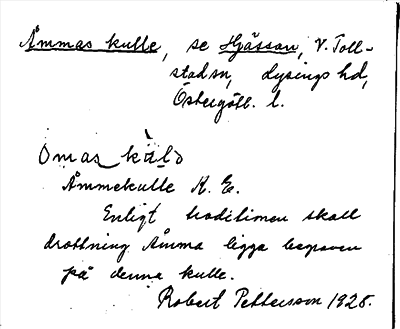 Åmmas kulle, se Hjässan, V. Toll-
stad sn, Lysings hd,
Östergötl. l.
Omas kùlɔ
Åmmekulle K. E.
Enligt traditionen skall
drottning Åmma ligga begraven
på denna kulle.
Robert Pettersson 1925.